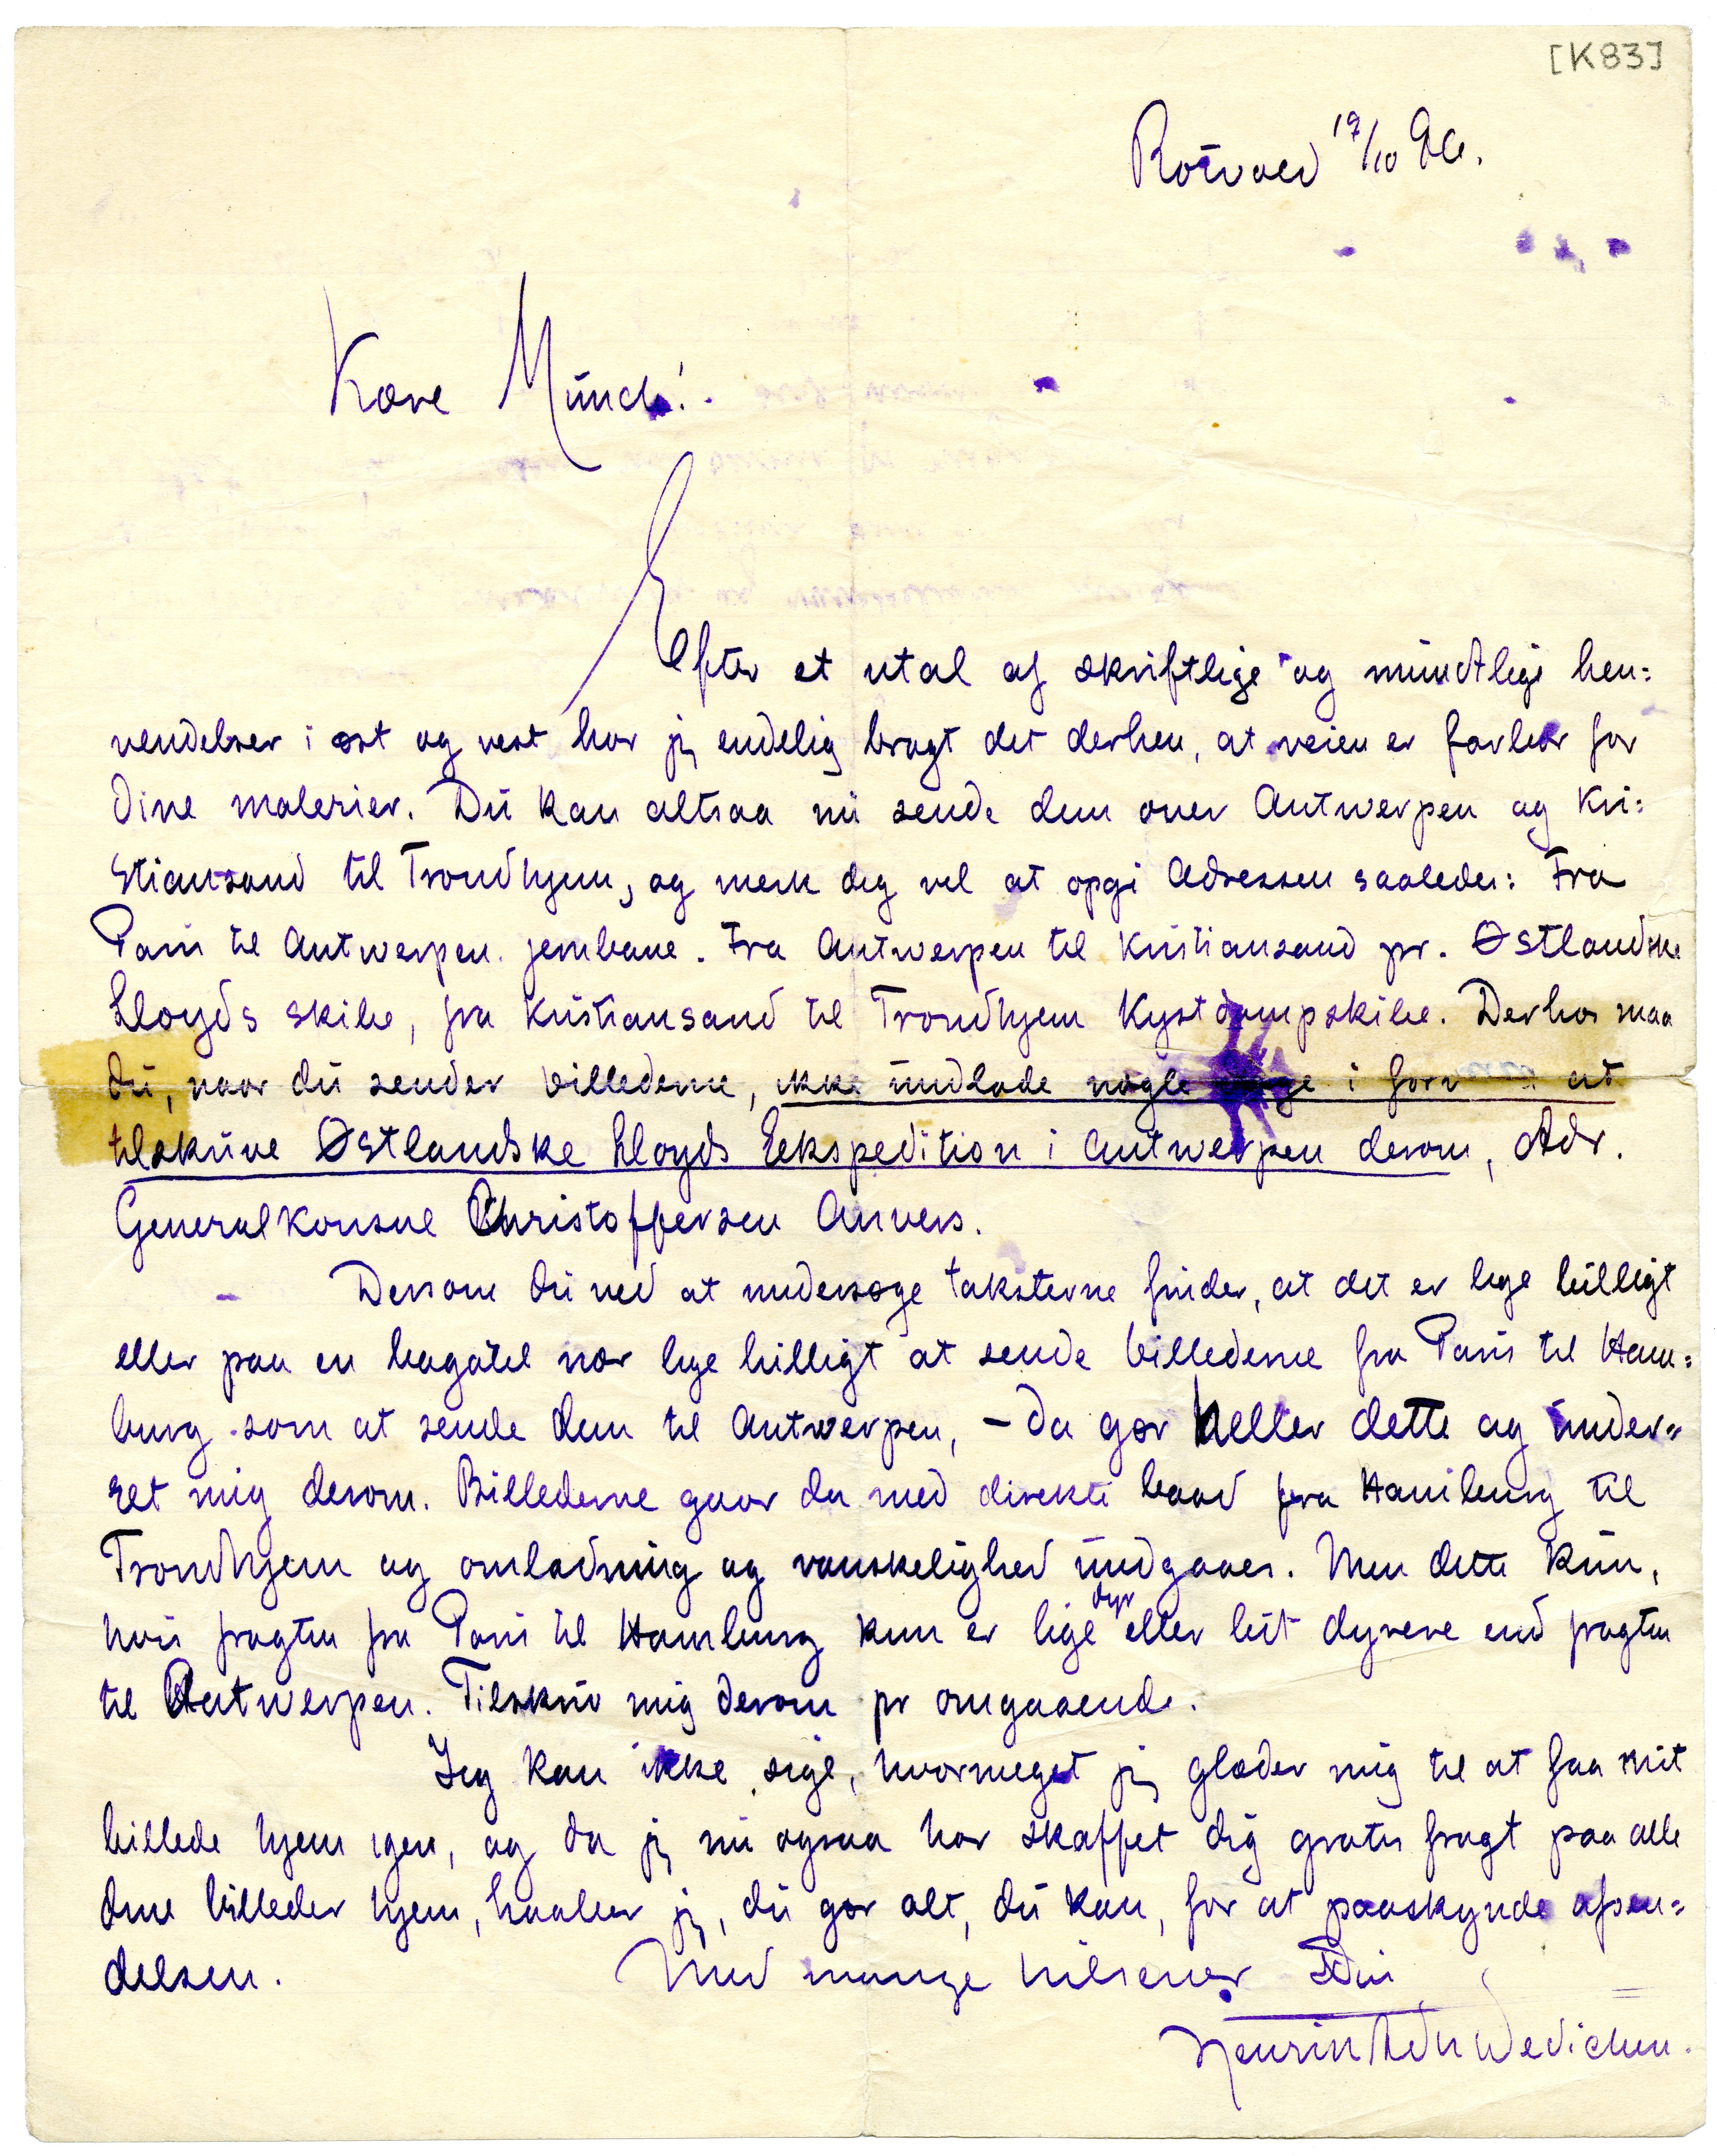 [K83]
Rotvold 17/10 96.
Kære Münch!
Efter et utal af skriftlige og mundtlige hen=
vendelser i øst og vest har jeg endelig bragt det derhen, at veien er farbar for
dine malerier. Du kan altsaa nu sende dem over Antwerpen og Kri=
stiansand til Trondhjem, og merk dig vel at opgi Adressen saaledes: Fra
Paris til Antwerpen jernbane. Fra Antwerpen til Kristiansand pr. Østlandske
Lloyds skibe, fra Kristiansand til Trondhjem Kystdampskibe. Derhos maa
du, naar du sender billederne, ikke undlade nogle dage i forveien at
tilskrive Østlandske Lloyds Eekspedition i Antwerpen derom, Adr.
Generalkonsul Christoffersen Anvers.
Dersom du ved at undersøge taksterne finder, at det er lige billigt
eller paa en bagatel nær lige billigt at sende billederne fra Paris til Ham=
burg som at sende dem til Antwerpen, – da gør heller dette og under=
ret mig derom. Billederne gaar da med direkte baad fra Hamburg til
Trondhjem og omladning og vanskelighed undgaaes. Men dette kun,
hvis fragten fra Paris til Hamburg kun er lige dyr eller lidt dyrere end fragten
til Antwerpen. Tilskriv mig derom pr omgaaende.
Jeg kan ikke sige, hvormeget jeg glæder mig til at faa mit
billede hjem igen, og da jeg nu ogsaa har skaffet dig gratis fragt paa alle
dine billeder hjem, haaber jeg, du gør alt, du kan, for at paaskynde afsen=
delsen. Med mange hilsener Din